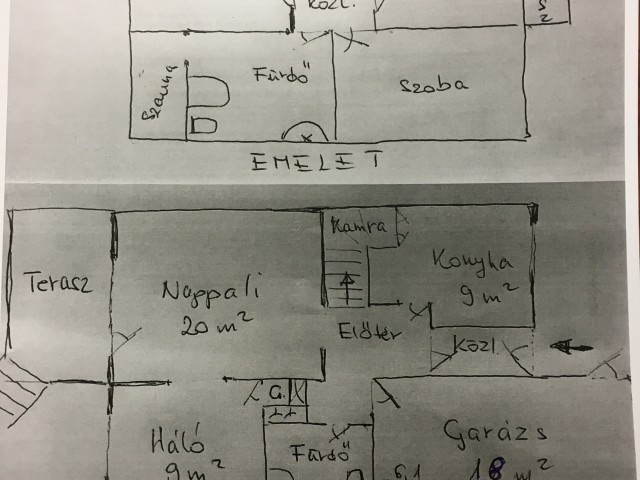 Közl.
S
Z
Szauna
Fürdő
Szoba
EMELET
Terasz
Nappali
20 m²
Kamra
Konyha
9 m²
Előtér
Közl.
G.
Háló
9 m²
Fürdő
Garázs
18 m²
6,1